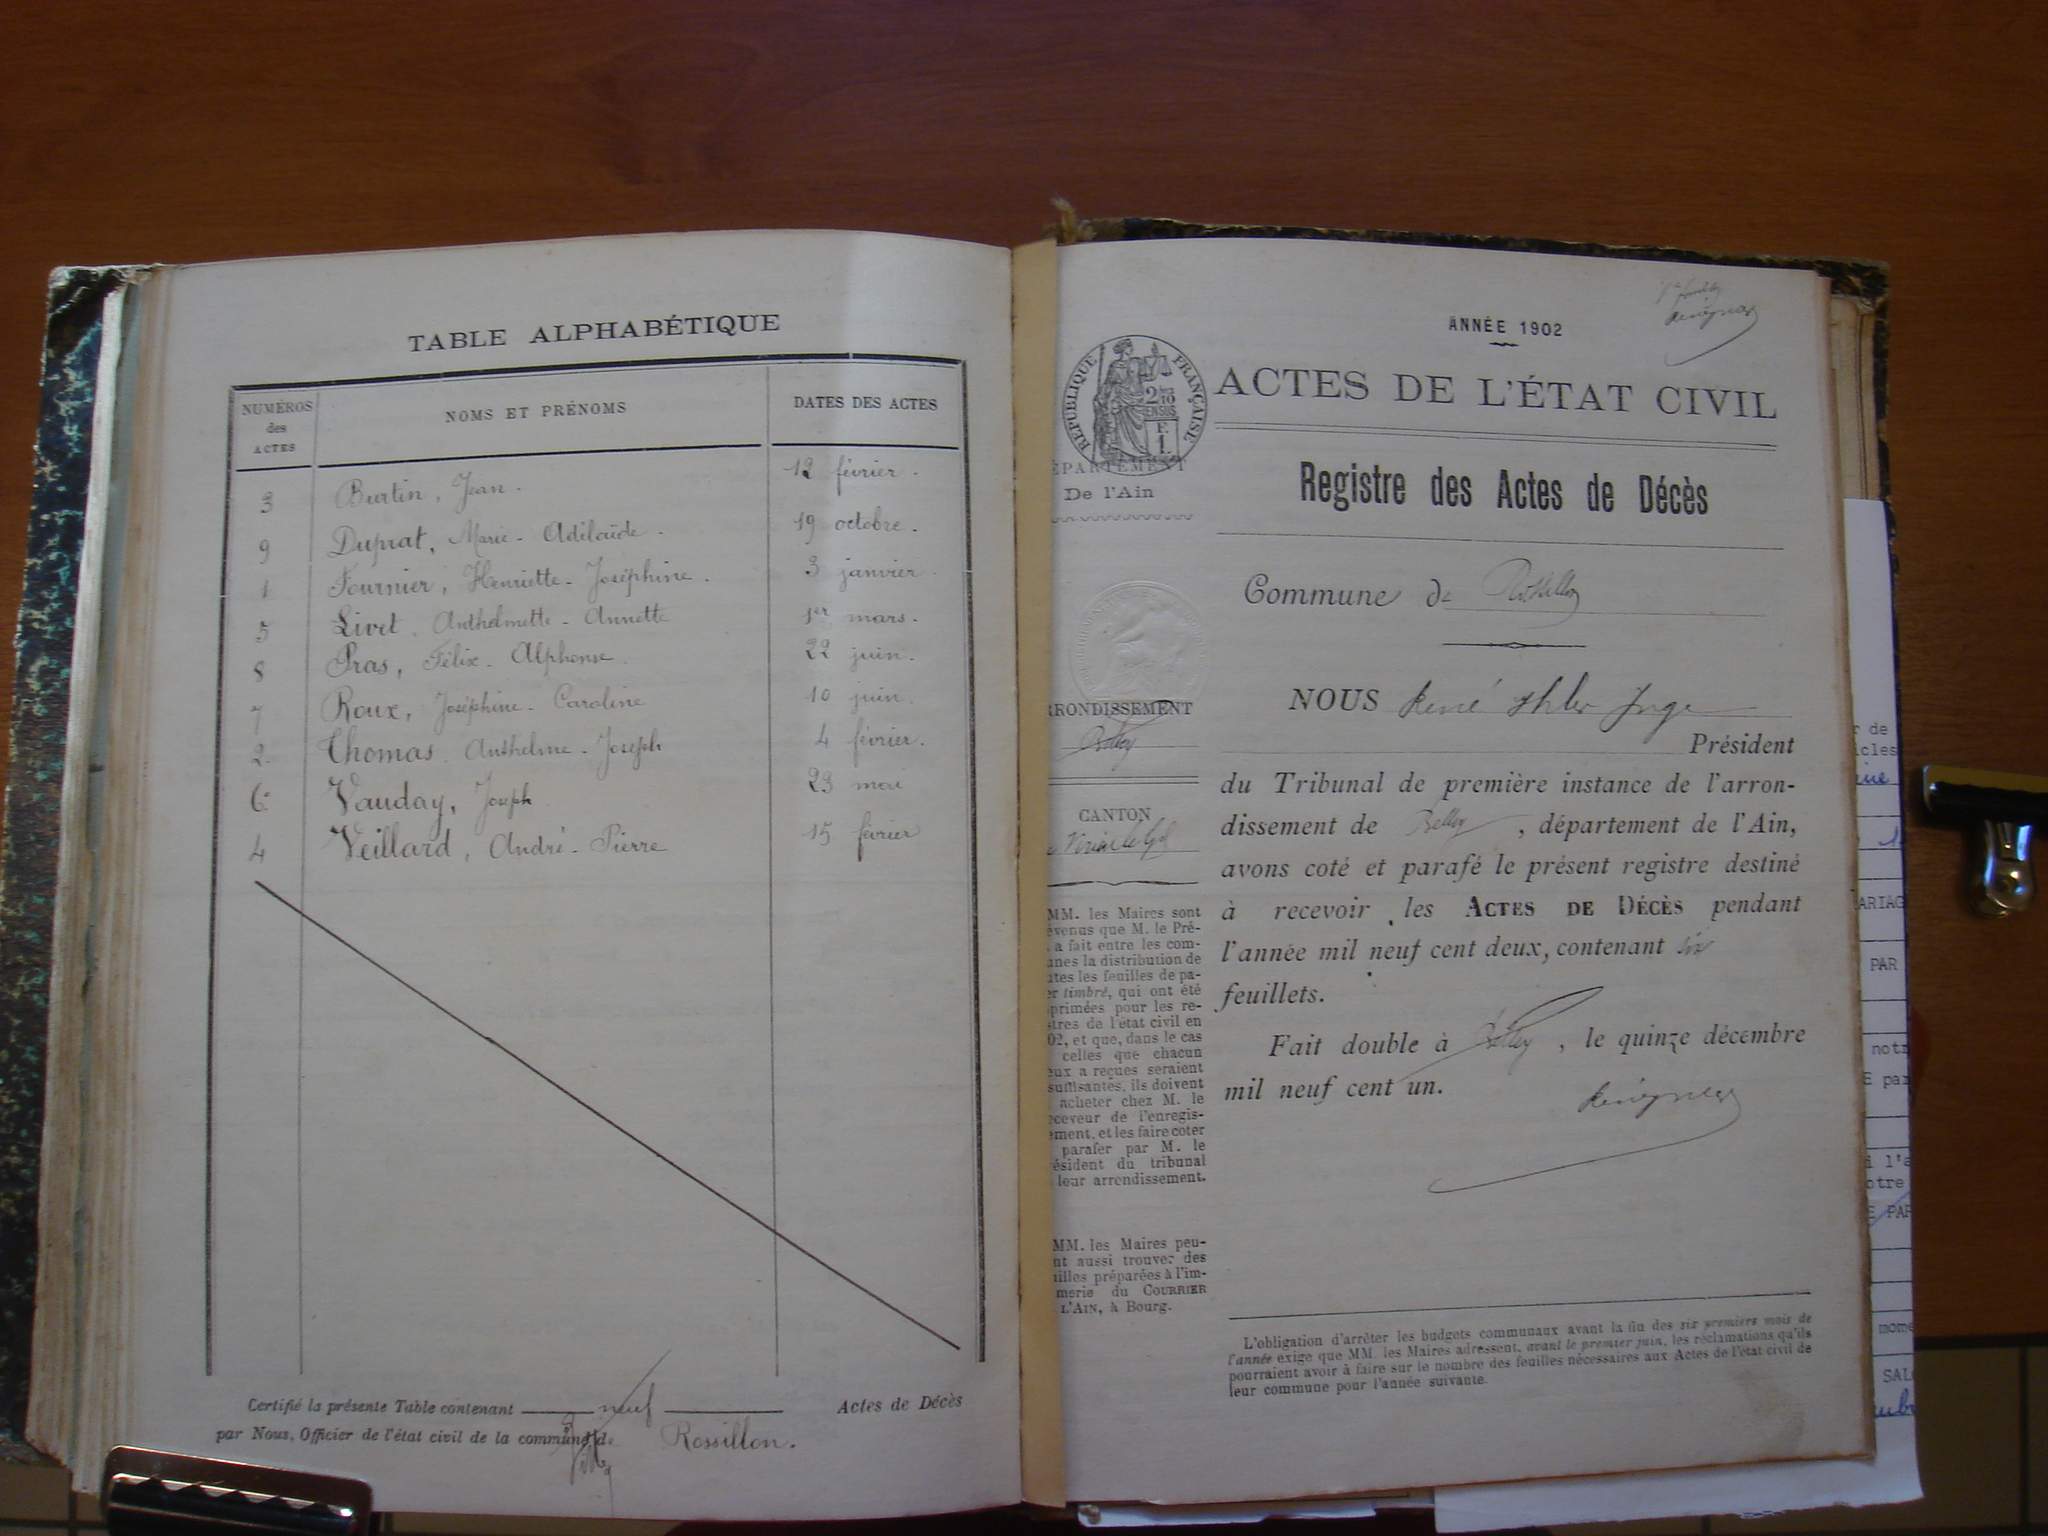 TABLE ALPHABÉTIQUE
NUMÉROS
des
ACTES
NOMS ET PRÉNOMS
DATES DES ACTES
3 Burtin, Jean. 12 février.
9 Duprat, Marie-Adélaïde. 19 octobre.
1 Fournier, Henriette-Joséphine. 3 janvier.
5 Livet, Anthelmette-Annette 1er mars.
8 Pras, Félix-Alphonse. 22 juin.
7 Roux, Joséphine-Caroline 10 juin.
2. Thomas Anthelme-Joseph 4 février.
6 Vauday, Joseph 23 mai
4 Veillard, André-Pierre 15 février
Certifié la présente Table contenant neuf Actes de Décès
par Nous, Officier de l'état civil de la commune de Rossillon.
ANNÉE 1902
ACTES DE L'ÉTAT CIVIL
RÉPUBLIQUE FRANÇAISE
2
10
EN SUS
F.
1.
ÉPARTEMENT
De l'Ain
Registre des Actes de Décès
Commune de Rossillon
RRONDISSEMENT
Belley
CANTON
NOUS René Juge
Président
du Tribunal de première instance de l'arron-
dissement de Belley, département de l'Ain,
avons coté et parafé le présent registre destiné
à recevoir les ACTES DE DÉCÈS pendant
l'année mil neuf cent deux, contenant six
feuillets.
Fait double à Belley, le quinze décembre
mil neuf cent un.
MM. les Maires sont
évenus que M. le Pré-
a fait entre les com-
unes la distribution de
utes les feuilles de pa-
er timbré, qui ont été
primées pour les re-
stres de l'état civil en
02, et que, dans le cas
celles que chacun
eux a reçues seraient
suffisantes, ils doivent
acheter chez M. le
ceveur de l'enregis-
ement, et les faire coter
parafer par M. le
ésident du tribunal
leur arrondissement.
MM. les Maires peu-
nt aussi trouver des
uilles préparées à l'im-
merie du COURRIER
L'AIN, à Bourg.
L'obligation d'arrêter les budgets communaux avant la fin des six premiers mois de
l'année exige que MM. les Maires adressent, avant le premier juin, les réclamations qu'ils
pourraient avoir à faire sur le nombre des feuilles nécessaires aux Actes de l'état civil de
leur commune pour l'année suivante.
r de
icles
ARIAG
PAR
notr
E par
i l'a
otre
E PAR
mome
SAL